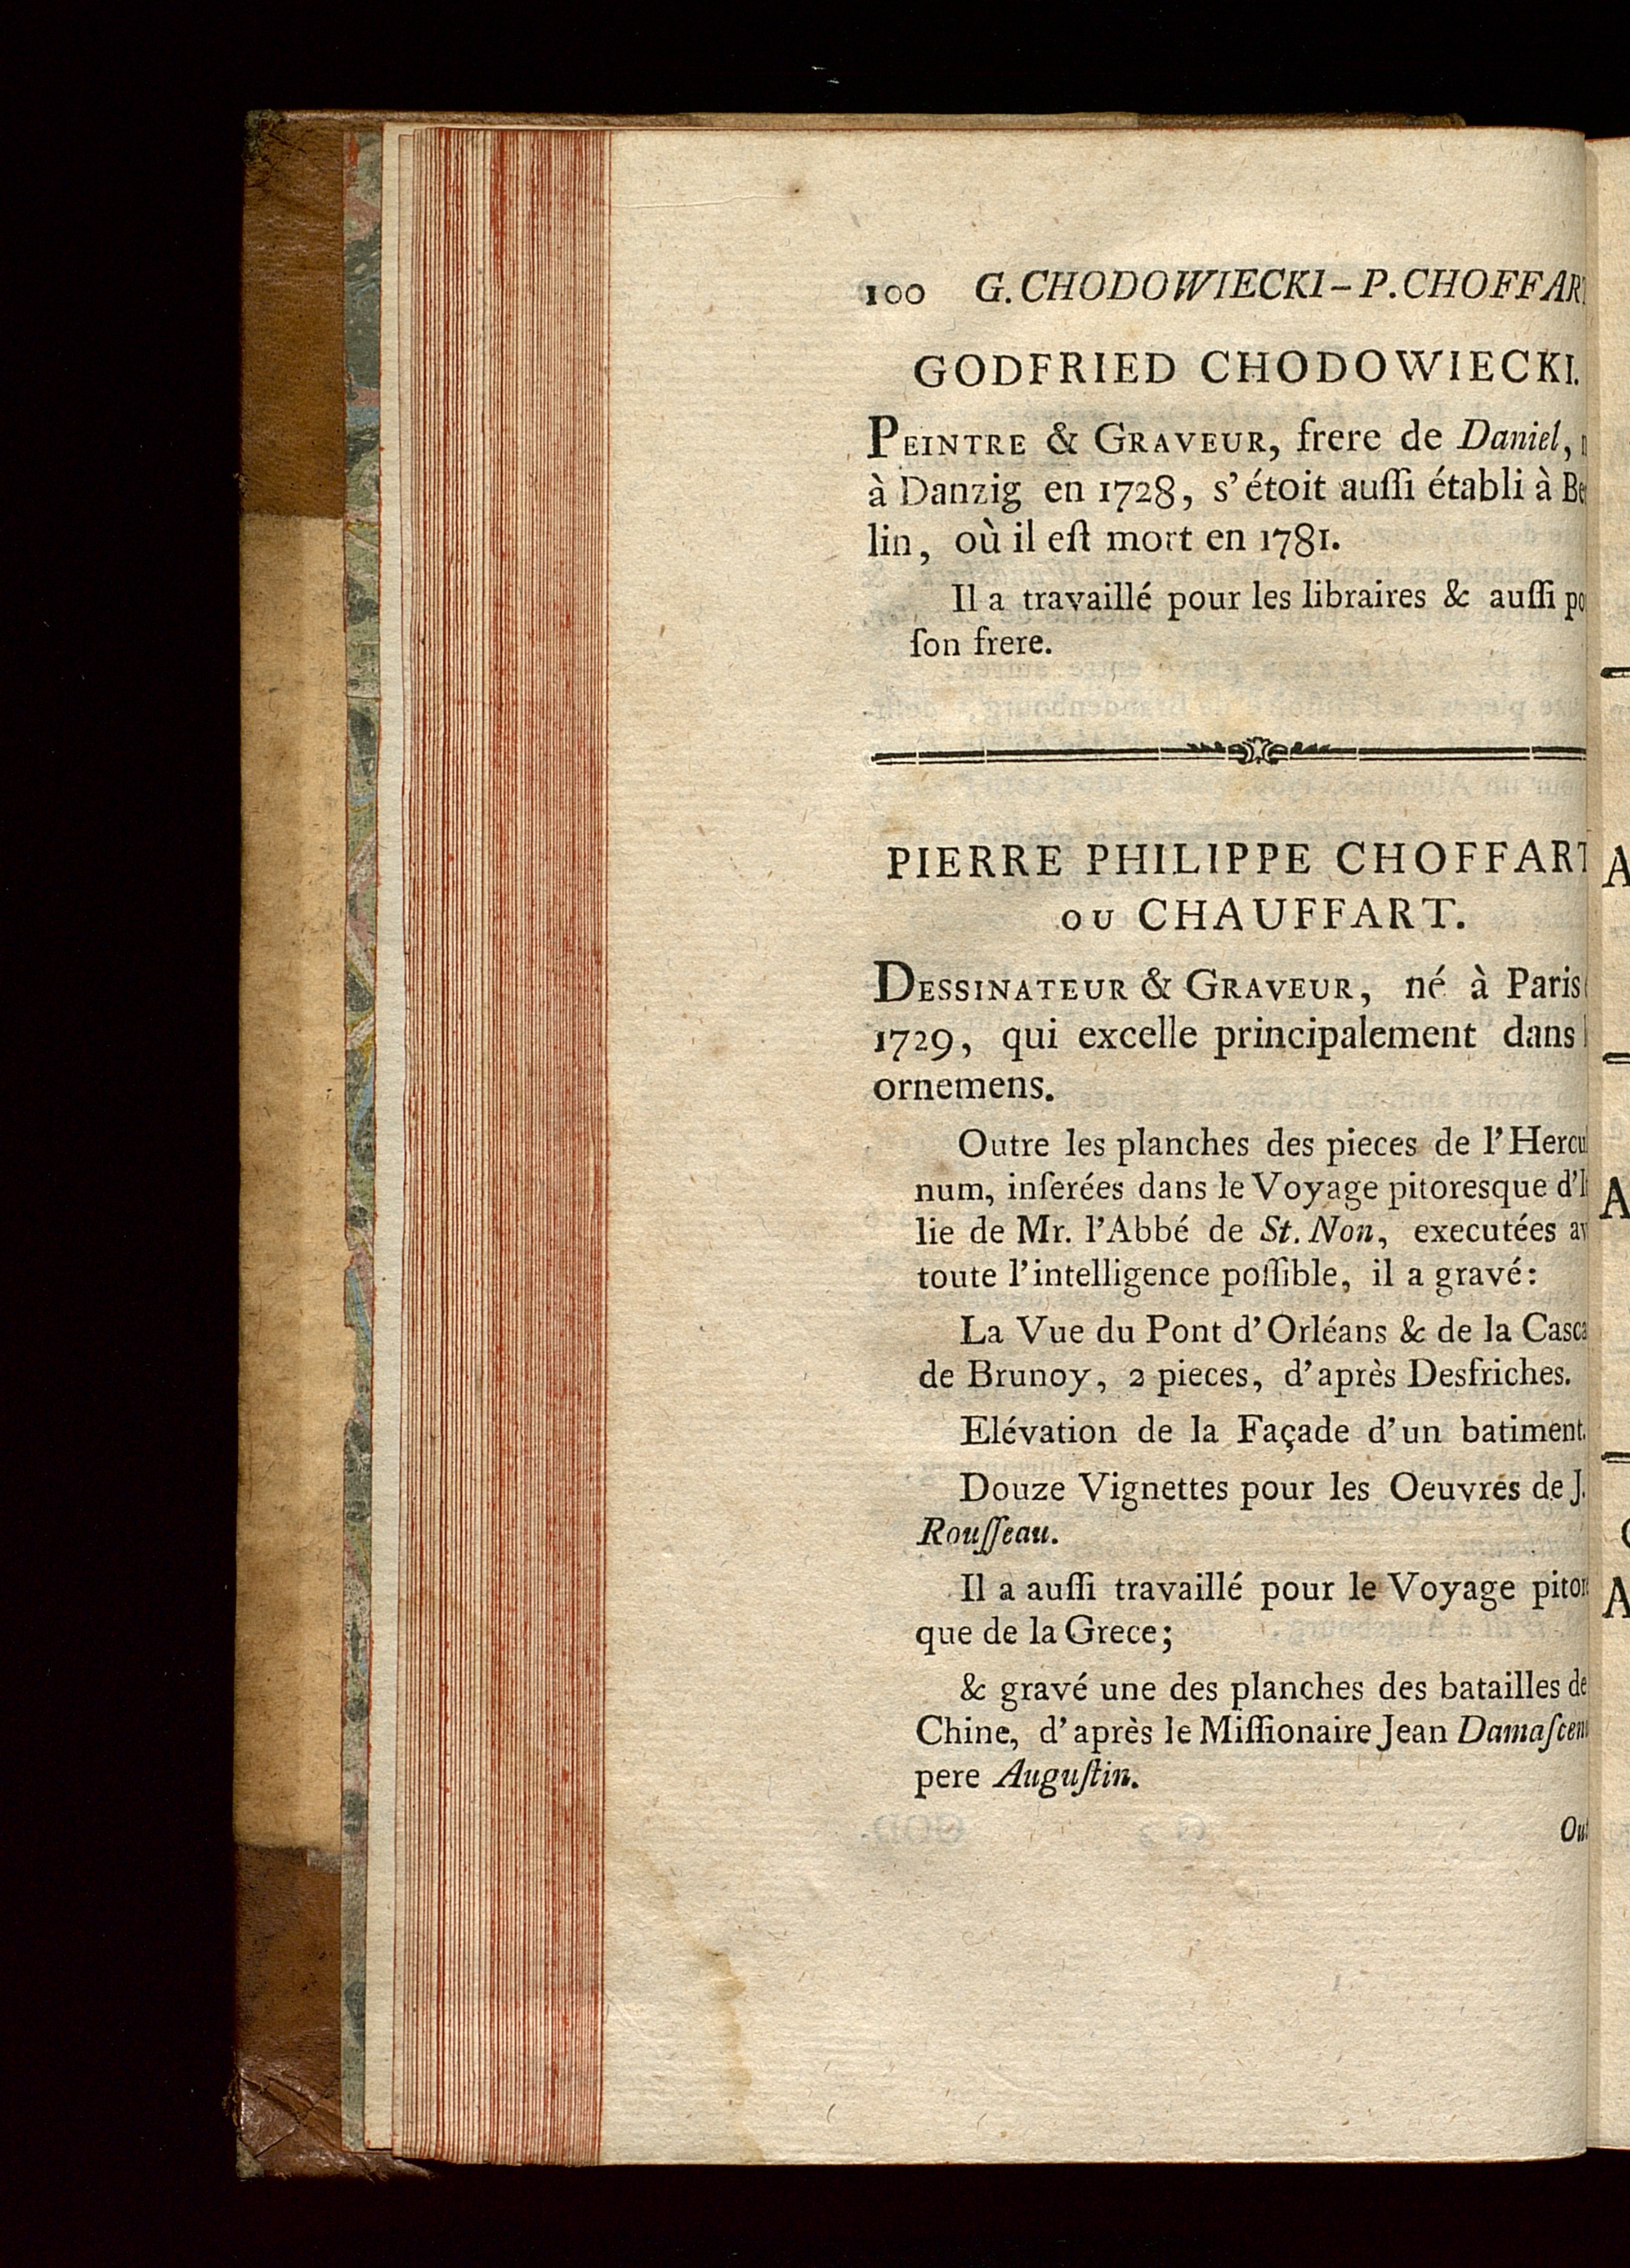 100 G. CHODOWIECKI – P. CHOFFAR
GODFRIED CHODOWIECKI.
PEINTRE & GRAVEUR, frere de Daniel,
à Danzig en 1728, s'étoit auſſi établi à Be
lin, où il eſt mort en 1781.
Il a travaillé pour les libraires & auſſi po
ſon frere.
PIERRE PHILIPPE CHOFFART
OU CHAUFFART.
DESSINATEUR & GRAVEUR, né à Paris
1729, qui excelle principalement dans
ornemens.
Outre les planches des pieces de l'Hercu
num, inſerées dans le Voyage pitoresque d'I
lie de Mr. l'Abbé de St. Non, executées av
toute l'intelligence poſſible, il a gravé:
La Vue du Pont d'Orléans & de la Casca
de Brunoy, 2 pieces, d'après Desfriches.
Elévation de la Façade d'un batiment.
Douze Vignettes pour les Oeuvres de J.
Rouſſeau.
Il a auſſi travaillé pour le Voyage pitor
que de la Grece;
& gravé une des planches des batailles de
Chine, d'après le Miſſionaire Jean Damaſcen
pere Auguſtin.
Ou